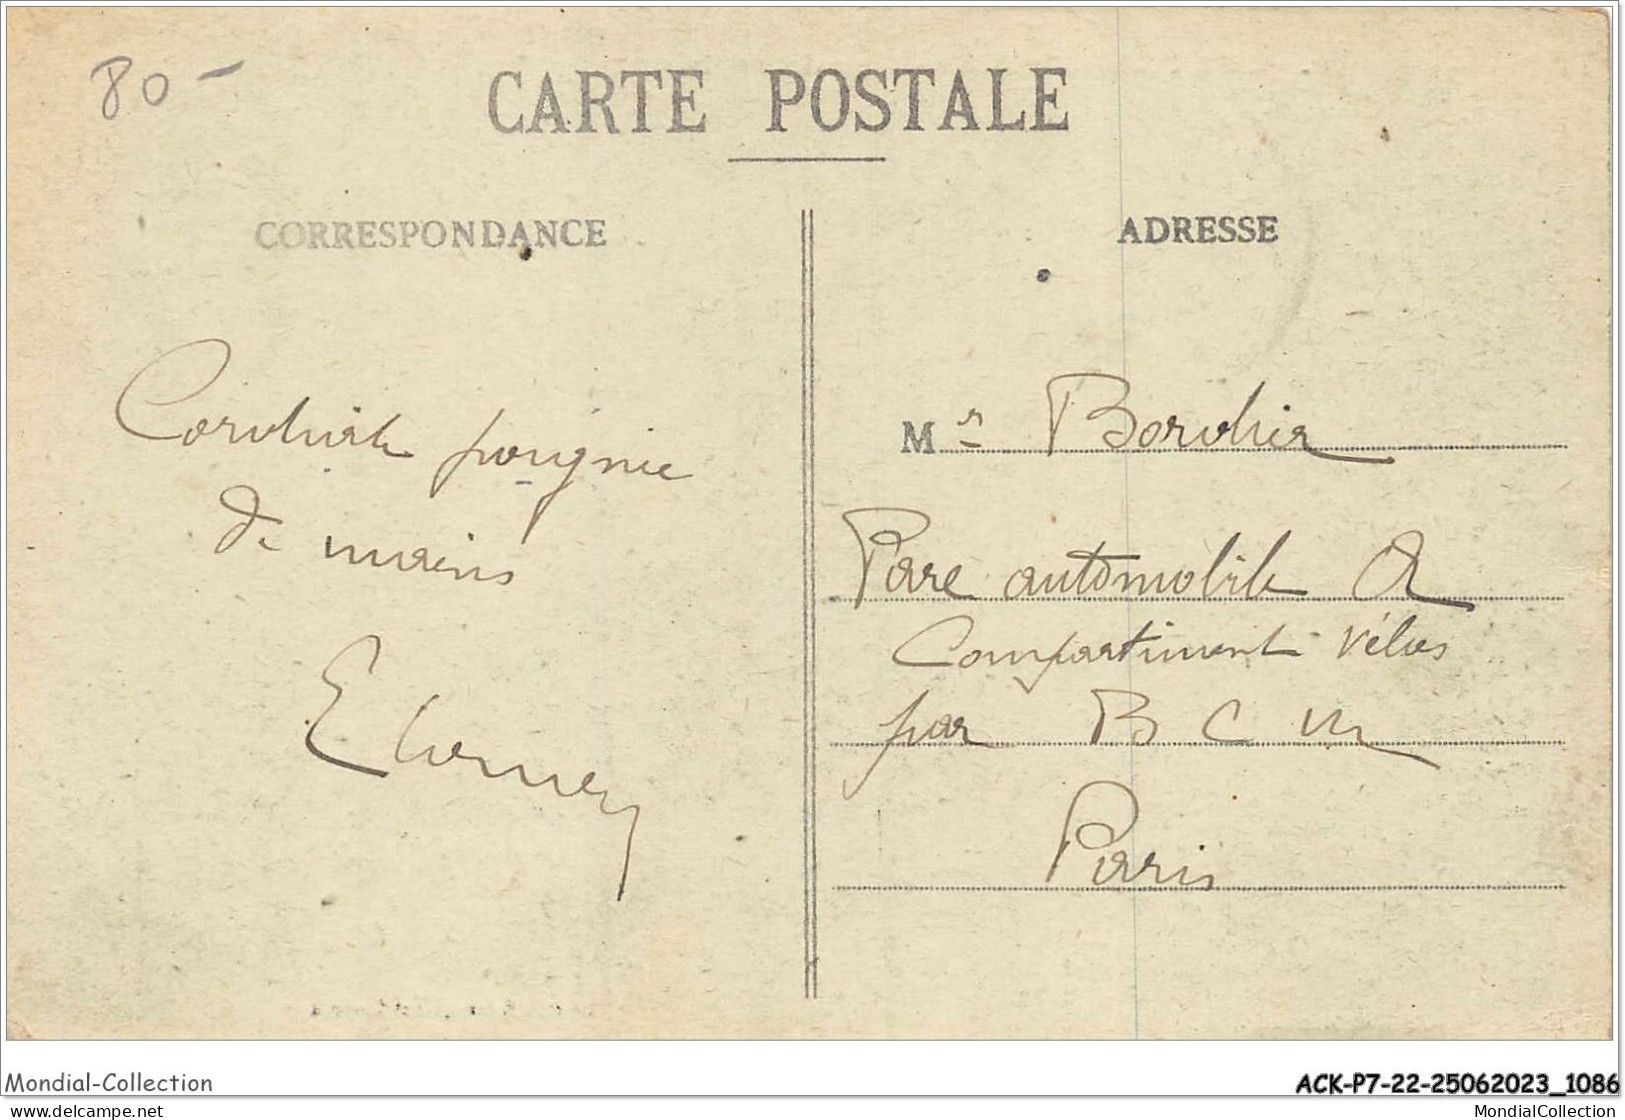 80 -
CARTE POSTALE
CORRESPONDANCE
ADRESSE
Cordiale poignée
de mains
Mr Bordier
Parc automobile A
Compartiment Vélos
par B C M
Paris
Mondial-Collection
ACK-P7-22-25062023_1086
www.delcampe.net
MondialCollection